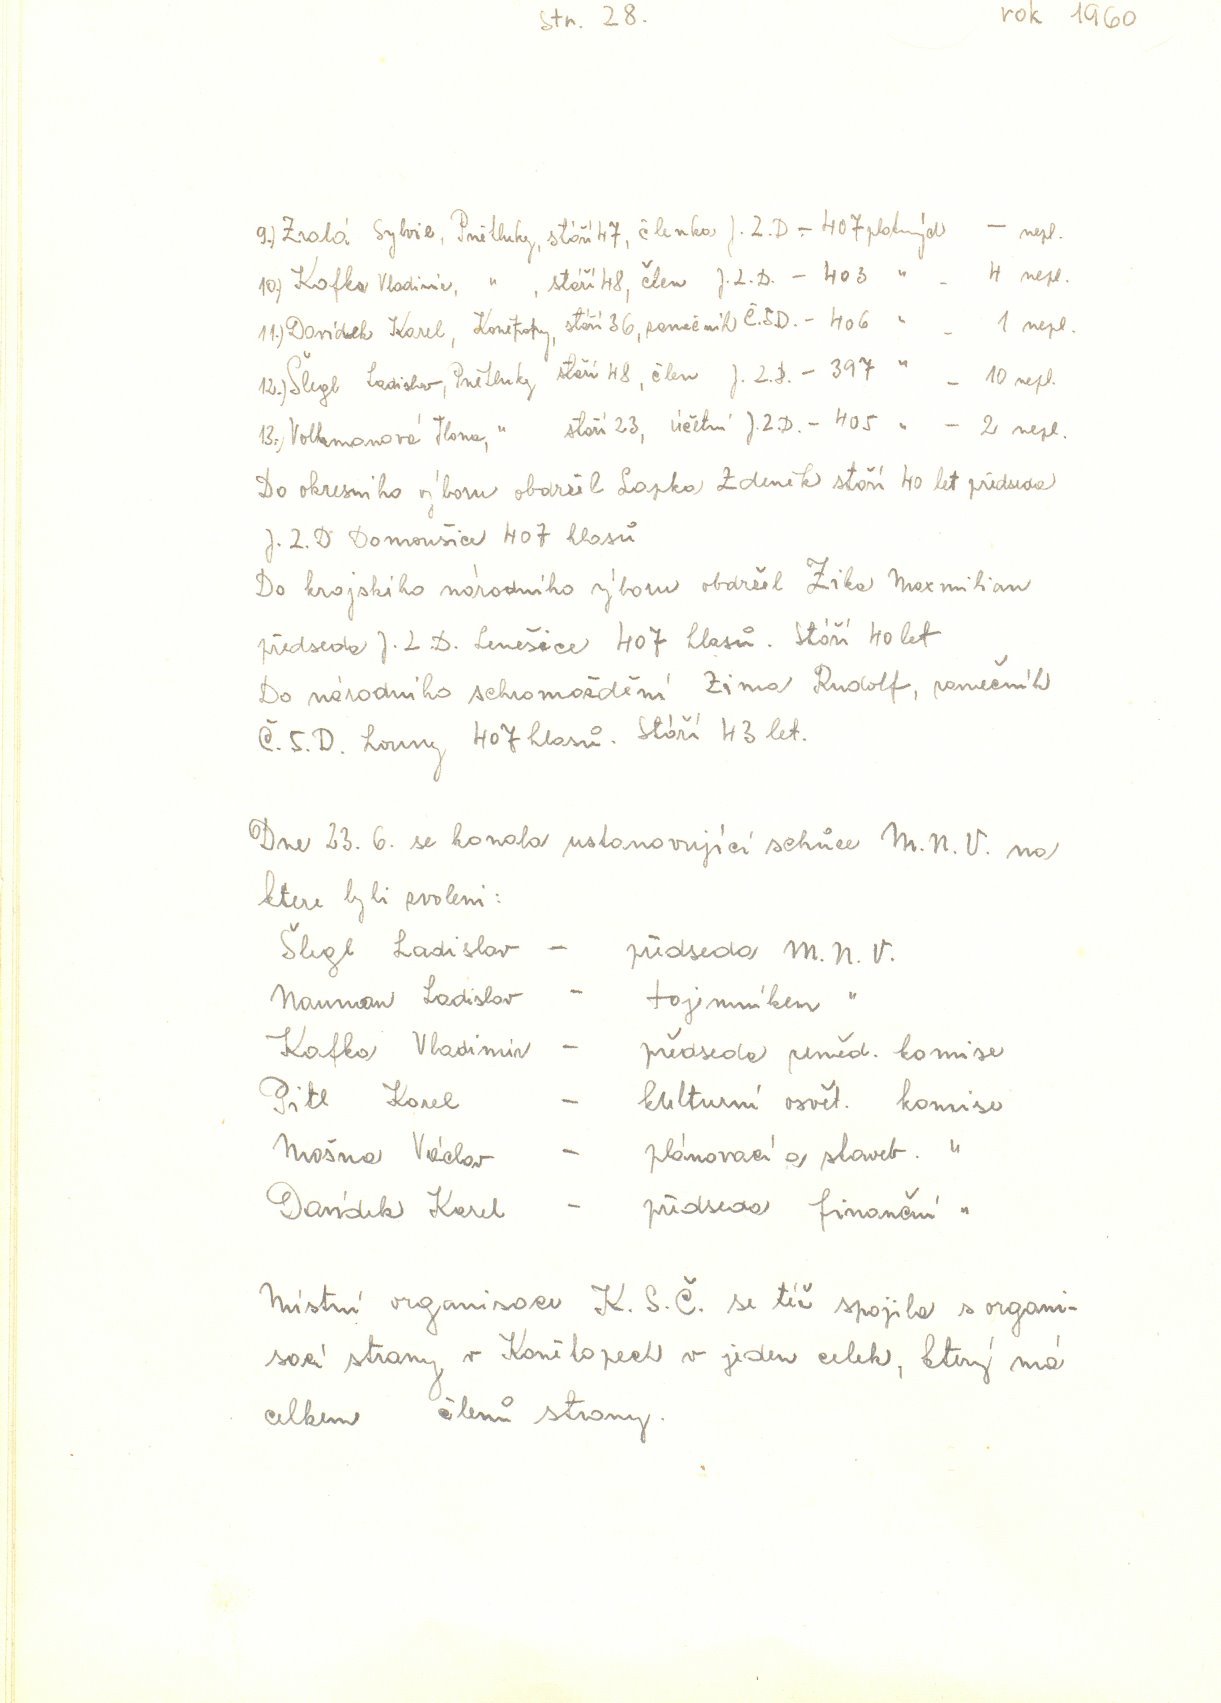 str. 28.
rok 1960
9.) Zralá Sylvie, Pnětluky, stáří 47, členka J.Z.D. - 407 platných - nepl.
10.) Kafka Vladimír, " , stáří 48, člen J.Z.D. - 403 " - 4 nepl.
11.) Davídek Karel, Konětopy, stáří 36, zámečník Č.S.D. - 406 " - 1 nepl.
12.) Šlegl Ladislav, Pnětluky stáří 48, člen J.Z.D. - 397 " - 10 nepl.
13.) Volkmanová Ilona, " stáří 23, účetní J.Z.D. - 405 " - 2 nepl.
Do okresního výboru obdržel Lapka Zdeněk stáří 40 let předseda
J.Z.D Domoušice 407 hlasů
Do krajského národního výboru obdržel Zika Maxmilian
předseda J.Z.D. Lenešice 407 hlasů. Stáří 40 let
Do národního schromáždění Zima Rudolf, zámečník
Č.S.D. Louny 407 hlasů. Stáří 43 let.
Dne 23. 6. se konala ustanovující schůze M.N.V. na
ktere byli zvoleni:
Šlegl Ladislav - předseda M.N.V.
Nauman Ladislav - tajemníkem "
Kafka Vladimír - předseda zeměd. komise
Pitl Karel - kulturní osvět. komise
Mošna Václav - plánovací a staveb. "
Davídek Karel - předseda finanční "
Místní organisace K.S.Č. se též spojila s organi-
sací strany v Konětopech v jeden celek, který má
celkem členů strany.